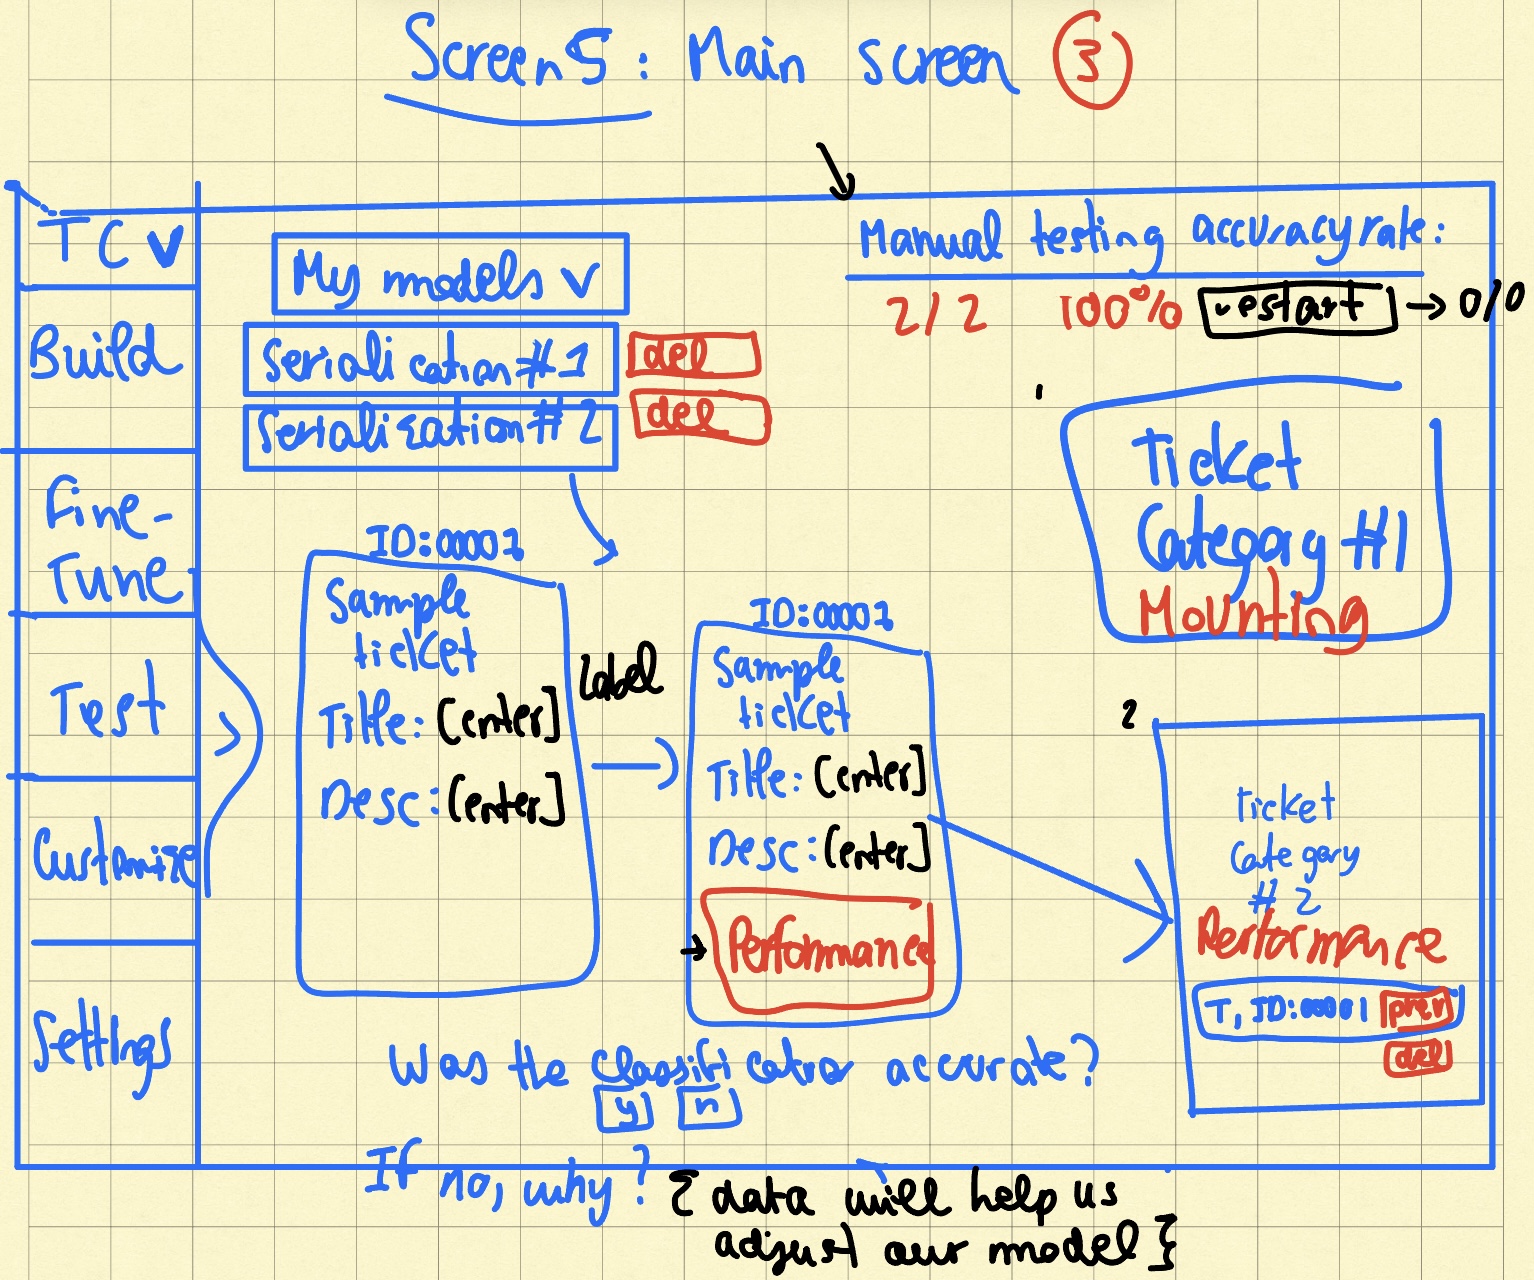 Screen 5: Main screen ③
TC v
Build
Fine-
Tune
Test
Customise
Settings
My models v
Serialication #1 del
Serialization #2 del
Manual testing accuracy rate:
2/2 100% restart → 0/0
ID:00001
Sample
ticket
Title: [enter]
Desc: [enter]
Label
ID:00001
Sample
ticket
Title: [enter]
Desc: [enter]
Performance
1
Ticket
Category #1
Mounting
2
Ticket
Category
#2
Performance
T, ID:00001 prev
del
Was the classification accurate?
y n
If no, why? { data will help us
adjust our model }